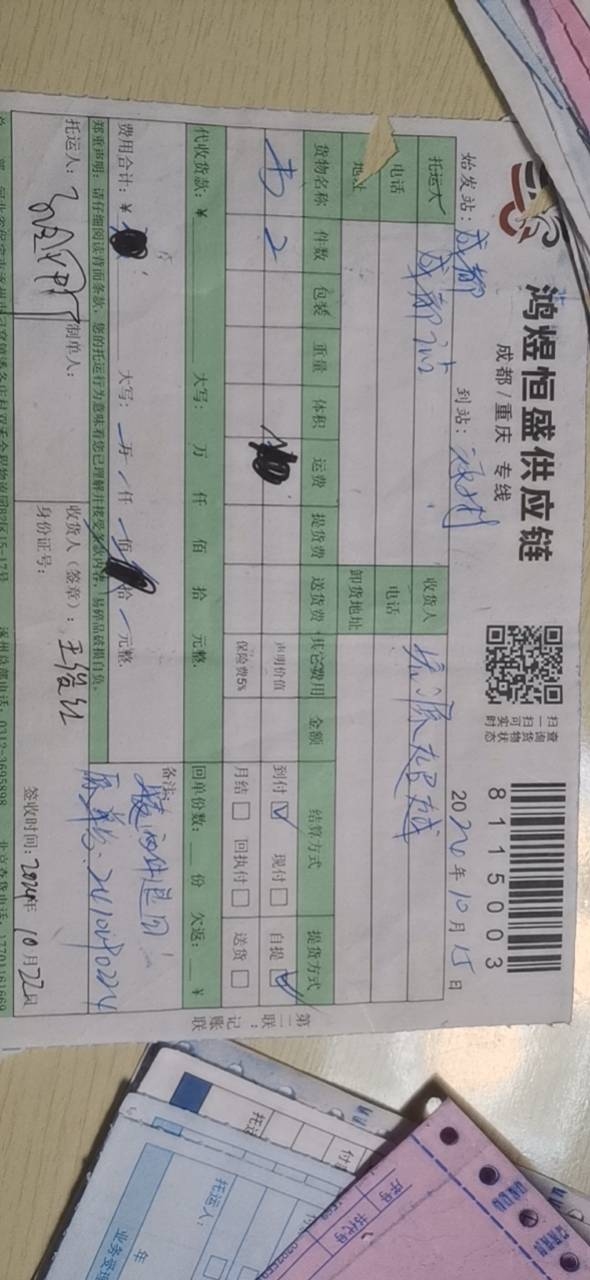 鸿煜恒盛供应链
成都/重庆 专线
扫一扫可实时
查询货物状态
8115003
始发站：成都 到站：涿州 2020年10月15日
托运人 成都站 收货人
电话 电话
地址 卸货地址
货物名称 件数 包装 重量 体积 运费 提货费 送货费 其它费用 金额 结算方式 提货方式
书 2 声明价值 到付 ☑ 现付 □ 自提 ☑
保险费5% 月结 □ 回执付 □ 送货 □
代收货款：¥ 大写： 万 仟 佰 拾 元整. 回单份数： 份 欠返： ¥
费用合计：¥ 大写： 万 仟 佰 拾 元整. 备注：
郑重声明：请仔细阅读背面条款，您的托运行为意味着您已理解并接受条款内容，易碎品破损自负。
托运人： 制单人： 收货人（签章）：王俊红
身份证号： 签收时间：2020年10月22日
第二联：记账联
涿州总部电话：0312-3695898 北京查货电话：17701161669
托运人：
年
业务受理
序号 书代号